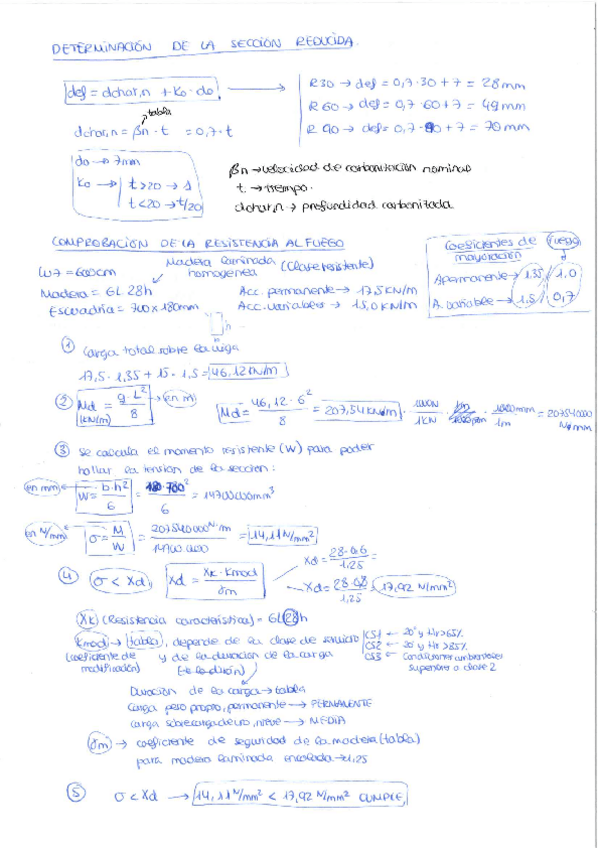 DETERMINACIÓN DE LA SECCIÓN REDUCIDA.
def = dchar,n + Ko · do → R30 → def = 0,7 · 30 + 7 = 28mm
R60 → def = 0,7 · 60 + 7 = 49mm
R90 → def = 0,7 · 90 + 7 = 70mm
tabla
dchar,n = βn · t = 0,7 · t
do → 7mm
Ko → t>20 → 1
t<20 → t/20
βn → velocidad de carbonización nominal
t → tiempo.
dchar,n → profundidad carbonizada
COMPROBACIÓN DE LA RESISTENCIA AL FUEGO
Coeficientes de mayoración fuego
Apermanente → 1,35 / 1,0
A. variable → 1,5 / 0,7
Madera laminada homogénea (Clase resistente)
Luz = 600cm
Madera = GL 28h
Escuadría = 700 x 180mm
Acc. permanente → 17,5 KN/m
Acc. variables → 15,0 KN/m
h
① Carga total sobre la viga
17,5 · 1,35 + 15 · 1,5 = 46,12 KN/m
② Md = q · L² / 8 → (en m)
(KN/m)
Md = 46,12 · 6² / 8 = 207,54 KN/m · 1000N / 1KN · 1000mm / 1m = 207540000 N·mm
③ Se calcula el momento resistente (W) para poder
hallar la tensión de la sección:
en mm ← W = b · h² / 6 = 180 · 700² / 6 = 14700000mm³
en N/mm ← σ = M / W = 207540000 N·m / 14700000 = 14,11 N/mm²
④ σ < Xd, Xd = Xk · Kmod / γm
Xd = 28 · 0,6 / 1,25 =
Xd = 28 · 0,8 / 1,25 = 17,92 N/mm²
Xk (Resistencia característica) = GL28h
Kmod → tabla, depende de la clase de servicio
(coeficiente de modificación)
y de la duración de la carga
CS1 ← 20° y Hr>65%
CS2 ← 20° y Hr>85%
CS3 ← Condiciones ambientales superiores a clase 2
Duración de la carga → tabla
Carga peso propio, permanente → PERMANENTE
Carga sobrecarga de uso, nieve → MEDIA
γm → coeficiente de seguridad de la madera (tabla)
para madera laminada encolada → 1,25
⑤ σ < Xd → 14,11 N/mm² < 17,92 N/mm² CUMPLE,